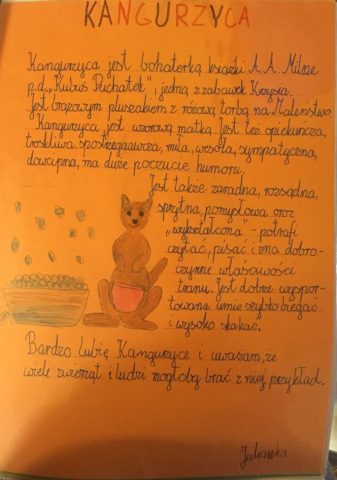 KANGURZYCA
Kangurzyca jest bohaterką książki A.A. Milne
p.t. „Kubuś Puchatek" i jedną z zabawek Krzysia.
Jest brązowym pluszakiem z różową torbą na Maleństwo.
Kangurzyca jest wzorową matką. Jest też opiekuńcza,
troskliwa, spostrzegawcza, miła, wesoła, sympatyczna,
dowcipna, ma duże poczucie humoru.
Jest także zaradna, rozsądna,
sprytna, pomysłowa oraz
„wykształcona" - potrafi
czytać, pisać i zna dobro-
czynne właściwości
tranu. Jest dobrze wyspor-
towana umie szybko biegać
i wysoko skakać.
Bardzo lubię Kangurzycę i uważam, że
wiele zwierząt i ludzi mogłoby brać z niej przykład.
Julianka